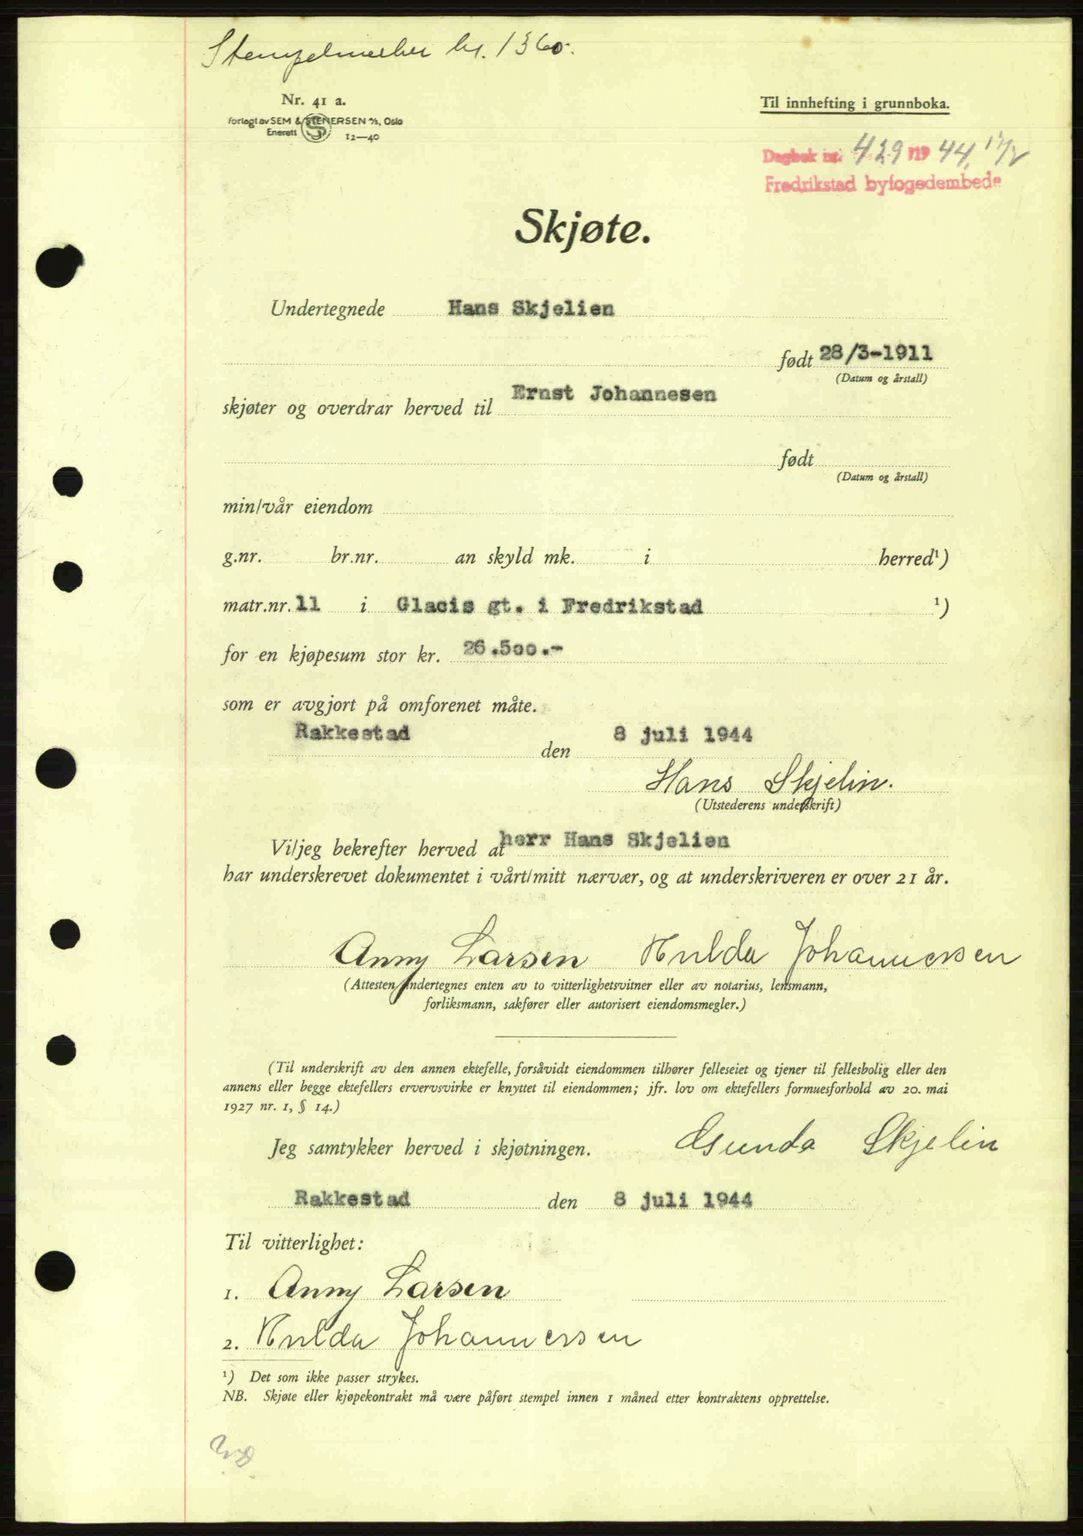 Stempelmerker kr. 1360.
Nr. 41 a.
Til innhefting i grunnboka.
forlagt av SEM & STENERSEN A/S, Oslo
Enerett 12—40
Dagbok nr. 429 1944, 17/7
Fredrikstad byfogedembede
Skjøte.
Undertegnede Hans Skjelien
født 28/3-1911
(Datum og årstall)
skjøter og overdrar herved til Ernst Johannesen
født
(Datum og årstall)
min/vår eiendom
g.nr. br.nr. an skyld mk. i herred¹)
matr.nr. 11 i Glacis gt. i Fredrikstad ¹)
for en kjøpesum stor kr. 26.500.-
som er avgjort på omforenet måte.
Rakkestad den 8 juli 1944
Hans Skjelin.
(Utstederens underskrift)
Vi/jeg bekrefter herved at herr Hans Skjelien
har underskrevet dokumentet i vårt/mitt nærvær, og at underskriveren er over 21 år.
Anny Larsen Hulda Johannessen
(Attesten undertegnes enten av to vitterlighetsvitner eller av notarius, lensmann,
forliksmann, sakfører eller autorisert eiendomsmegler.)
(Til underskrift av den annen ektefelle, forsåvidt eiendommen tilhører felleseiet og tjener til fellesbolig eller den
annens eller begge ektefellers ervervsvirke er knyttet til eiendommen; jfr. lov om ektefellers formuesforhold av 20. mai
1927 nr. 1, § 14.)
Jeg samtykker herved i skjøtningen. Gunda Skjelin
Rakkestad den 8 juli 1944
Til vitterlighet:
1. Anny Larsen
2. Hulda Johannessen
¹) Det som ikke passer strykes.
NB. Skjøte eller kjøpekontrakt må være påført stempel innen 1 måned etter kontraktens opprettelse.